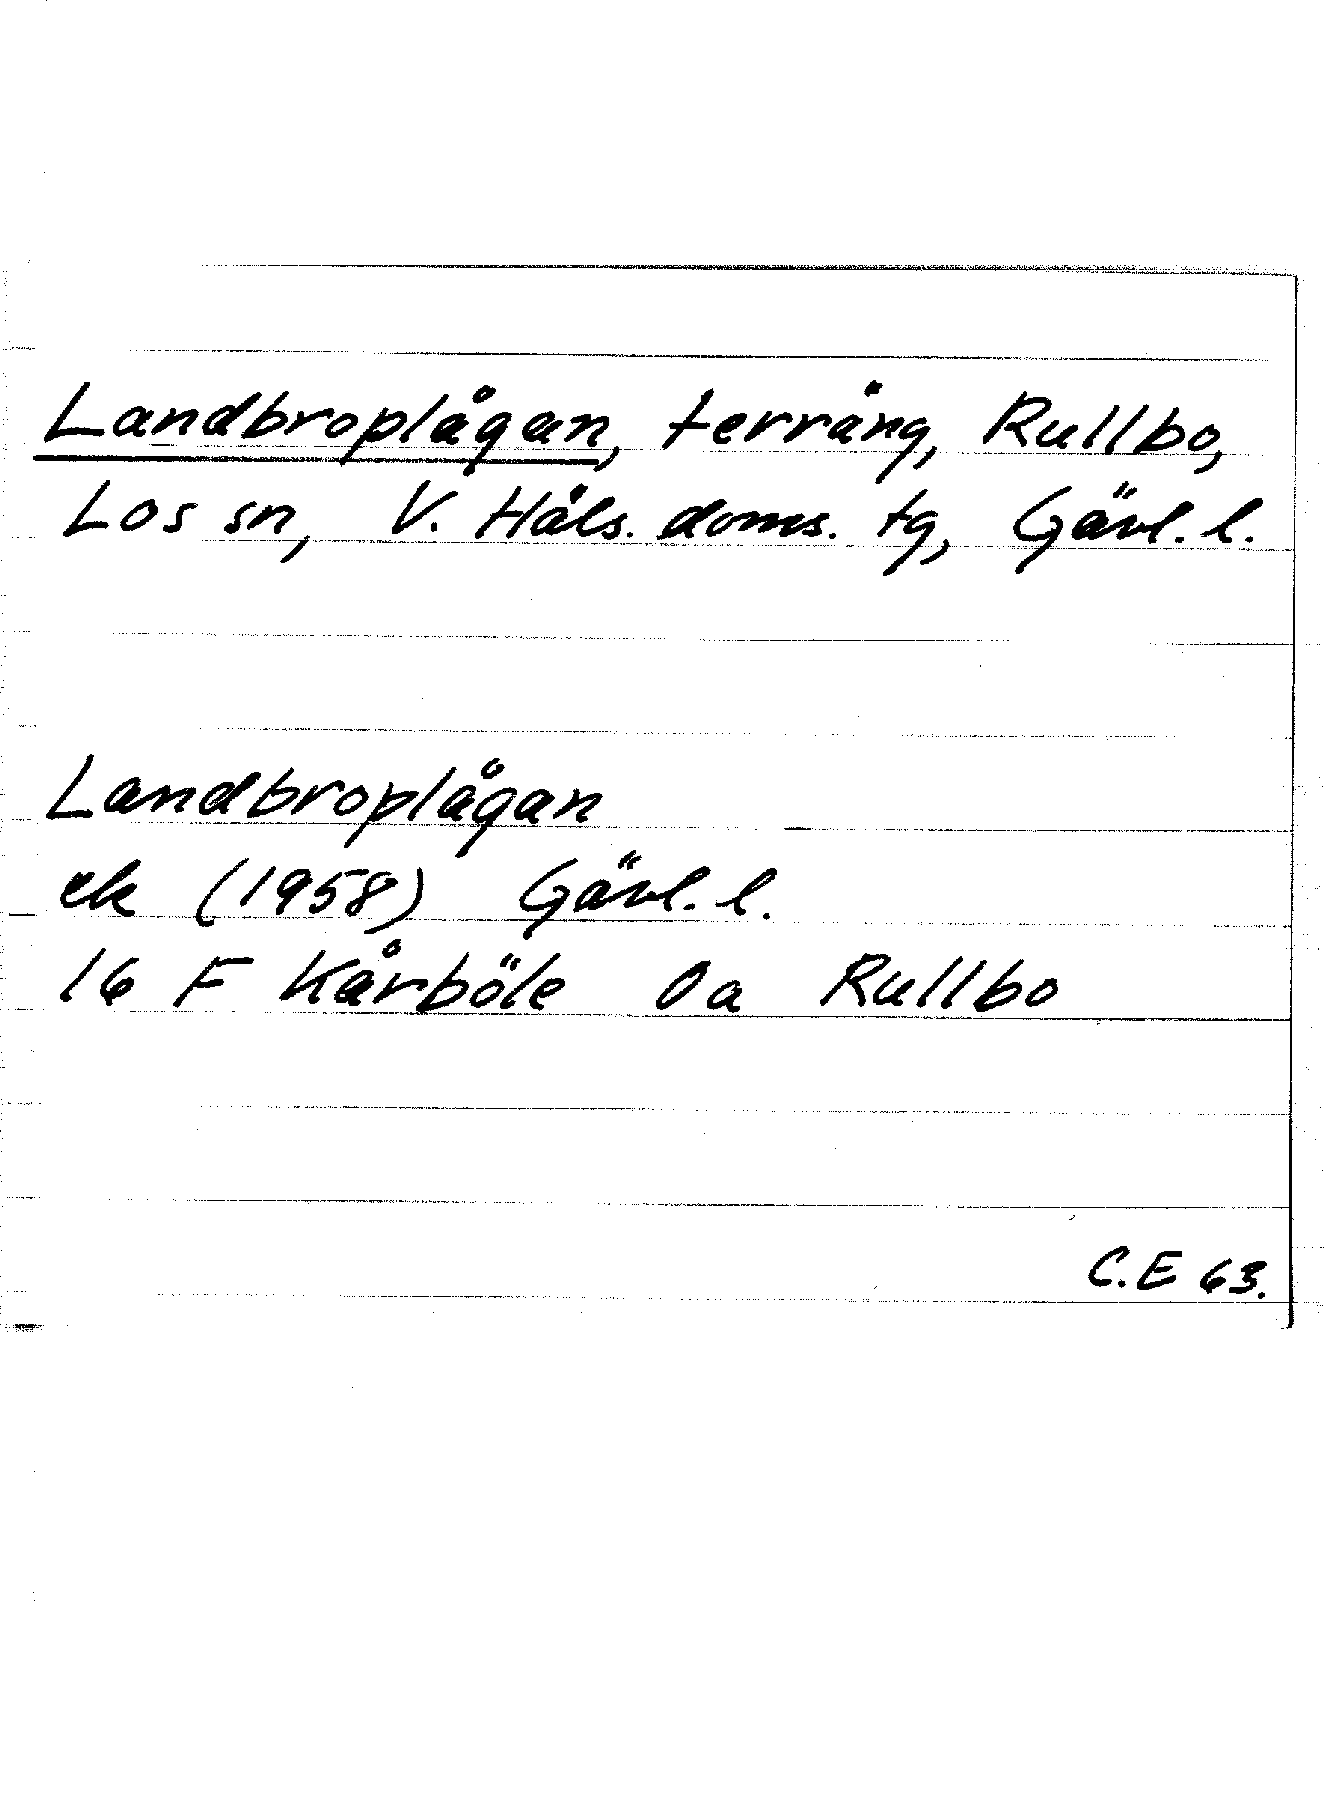 Landbroplågan, terräng, Rullbo,
Los sn, V. Häls. doms. tg, Gävl. l.
Landbroplågan
ek (1958) Gävl. l.
16 F Kårböle 0a Rullbo
C.E 63.